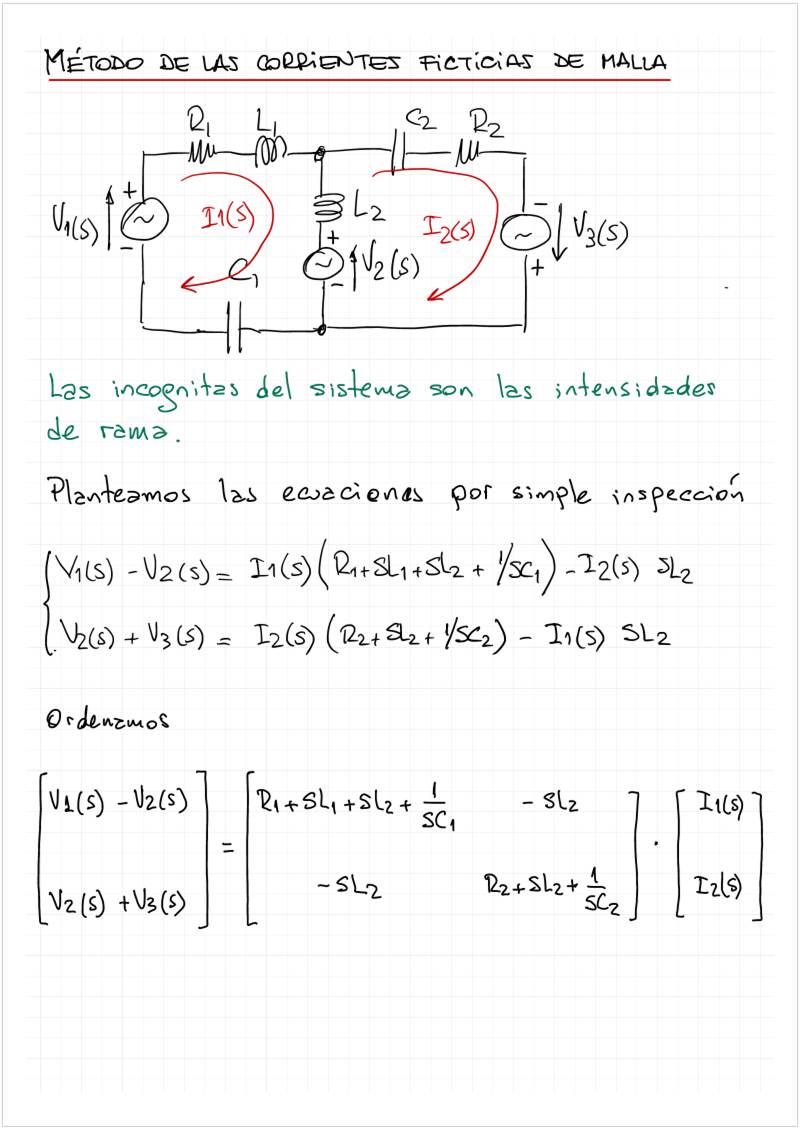 MÉTODO DE LAS CORRIENTES FICTICIAS DE MALLA
R1 L1 C2 R2
+ -
V1(s) I1(s) L2 I2(s) V3(s)
- + V2(s) +
C1 -
Las incognitas del sistema son las intensidades
de rama.
Planteamos las ecuaciones por simple inspección
V1(s) - V2(s) = I1(s) (R1+SL1+SL2 + 1/SC1) - I2(s) SL2
V2(s) + V3(s) = I2(s) (R2+SL2+1/SC2) - I1(s) SL2
Ordenamos
[V1(s) - V2(s)] = [R1+SL1+SL2+ 1/SC1 - SL2] · [I1(s)]
[V2(s) + V3(s)] [-SL2 R2+SL2+ 1/SC2] [I2(s)]